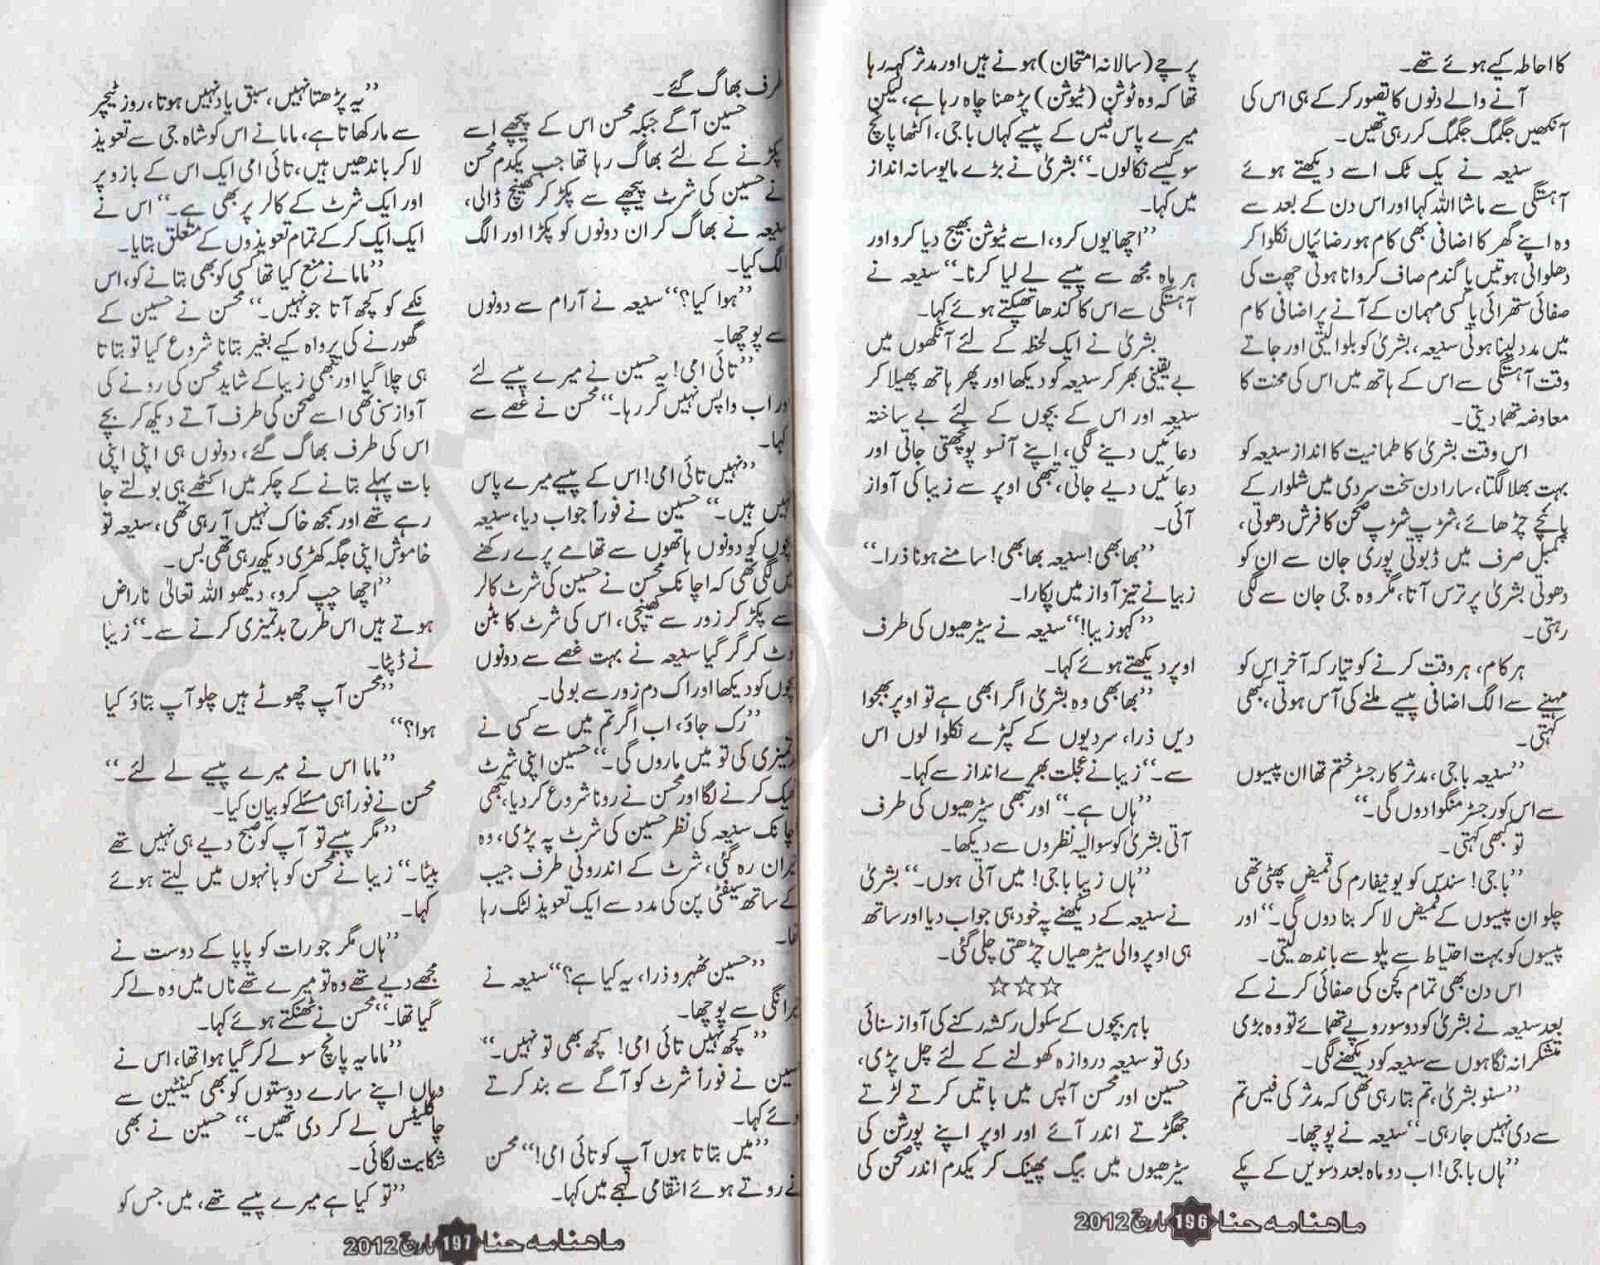 کا احاطہ کیے ہوئے تھے۔
آنے والے دنوں کا تصور کر کے ہی اس کی
آنکھیں جگمگ جگمگ کر رہی تھیں۔
سنیعہ نے یک ٹک اسے دیکھتے ہوئے
آہستگی سے ماشا اللہ کہا اور اس دن کے بعد سے
وہ اپنے گھر کا اضافی بھی کام ہو رضائیاں نکلوا کر
دھلوانی ہوتیں یا گندم صاف کروانا ہوتی چھت کی
صفائی ستھرائی یا کسی مہمان کے آنے پر اضافی کام
میں مدد لینا ہوتی سنیعہ، بشریٰ کو بلوا لیتی اور جاتے
وقت آہستگی سے اس کے ہاتھ میں اس کی محنت کا
معاوضہ تھما دیتی۔
اس وقت بشریٰ کا طمانیت کا انداز سنیعہ کو
بہت بھلا لگتا، سارا دن سخت سردی میں شلوار کے
پائنچے چڑھائے، شڑپ شڑپ صحن کا فرش دھوتی،
کمبل صرف میں ڈبوتی پوری جان سے ان کو
دھوتی بشریٰ پر ترس آتا، مگر وہ جی جان سے لگی
رہتی۔
ہر کام، ہر وقت کرنے کو تیار کہ آخر اس کو
مہینے سے الگ اضافی پیسے ملنے کی آس ہوتی، کبھی
کہتی۔
”سنیعہ باجی، مدثر کا رجسٹر ختم تھا ان پیسوں
سے اس کو رجسٹر منگوا دوں گی۔“
تو کبھی کہتی۔
”باجی! سندس کو یونیفارم کی قمیض پھٹی تھی
چلو ان پیسوں کے قمیض لا کر بنا دوں گی۔“ اور
پیسوں کو بہت احتیاط سے پلو سے باندھ لیتی۔
اس دن بھی تمام کچن کی صفائی کرنے کے
بعد سنیعہ نے بشریٰ کو دو سو روپے تھمائے تو وہ بڑی
متشکرانہ نگاہوں سے سنیعہ کو دیکھنے لگی۔
”سنو بشریٰ، تم بتا رہی تھی کہ مدثر کی فیس تم
سے دی نہیں جا رہی۔“ سنیعہ نے پوچھا۔
”ہاں باجی! اب دو ماہ بعد دسویں کے پکے
پرچے (سالانہ امتحان) ہونے ہیں اور مدثر کہہ رہا
تھا کہ وہ ٹوشن (ٹیوشن) پڑھنا چاہ رہا ہے، لیکن
میرے پاس فیس کے پیسے کہاں باجی، اکٹھا پانچ
سو کیسے نکالوں۔“ بشریٰ نے بڑے مایوسانہ انداز
میں کہا۔
”اچھا یوں کرو، اسے ٹیوشن بھیج دیا کرو اور
ہر ماہ مجھ سے پیسے لے لیا کرنا۔“ سنیعہ نے
آہستگی سے اس کا کندھا تھپکتے ہوئے کہا۔
بشریٰ نے ایک لحظہ کے لئے آنکھوں میں
بے یقینی بھر کر سنیعہ کو دیکھا اور پھر ہاتھ پھیلا کر
سنیعہ اور اس کے بچوں کے لئے بے ساختہ
دعائیں دینے لگی، اپنے آنسو پونچھتی جاتی اور
دعائیں دیے جاتی، تبھی اوپر سے زیبا کی آواز
آئی۔
”بھابھی! سنیعہ بھابھی! سامنے ہونا ذرا۔“
زیبا نے تیز آواز میں پکارا۔
”کہو زیبا!“ سنیعہ نے سیڑھیوں کی طرف
اوپر دیکھتے ہوئے کہا۔
”بھابھی وہ بشریٰ اگر ابھی ہے تو اوپر بھجوا
دیں ذرا، سردیوں کے کپڑے نکلوا لوں اس
سے۔“ زیبا نے عجلت بھرے انداز سے کہا۔
”ہاں ہے۔“ اور تبھی سیڑھیوں کی طرف
آتی بشریٰ کو سوالیہ نظروں سے دیکھا۔
”ہاں زیبا باجی! میں آتی ہوں۔“ بشریٰ
نے سنیعہ کے دیکھنے پہ خود ہی جواب دیا اور ساتھ
ہی اوپر والی سیڑھیاں چڑھتی چلی گئی۔
☆☆☆
باہر بچوں کے سکول رکشہ رکنے کی آواز سنائی
دی تو سنیعہ دروازہ کھولنے کے لئے چل پڑی،
حسین اور محسن آپس میں باتیں کرتے لڑتے
جھگڑتے اندر آئے اور اوپر اپنے پورشن کی
سیڑھیوں میں بیگ پھینک کر یکدم اندر صحن کی
ماہنامہ حنا 196 مارچ 2012
طرف بھاگ گئے۔
حسین آگے جبکہ محسن اس کے پیچھے اسے
پکڑنے کے لئے بھاگ رہا تھا جب یکدم محسن
نے حسین کی شرٹ پیچھے سے پکڑ کر کھینچ ڈالی،
سنیعہ نے بھاگ کر ان دونوں کو پکڑا اور الگ
الگ کیا۔
”ہوا کیا؟“ سنیعہ نے آرام سے دونوں
سے پوچھا۔
”تائی امی! یہ حسین نے میرے پیسے لئے
اور اب واپس نہیں کر رہا۔“ محسن نے غصے سے
کہا۔
”نہیں تائی امی! اس کے پیسے میرے پاس
نہیں ہیں۔“ حسین نے فوراً جواب دیا، سنیعہ
بچوں کو دونوں ہاتھوں سے تھامے پرے رکھنے
میں لگی تھی کہ اچانک محسن نے حسین کی شرٹ کالر
سے پکڑ کر زور سے کھینچی، اس کی شرٹ کا بٹن
ٹوٹ کر گر گیا سنیعہ نے بہت غصے سے دونوں
بچوں کو دیکھا اور اک دم زور سے بولی۔
”رک جاؤ، اب اگر تم میں سے کسی نے
بدتمیزی کی تو میں ماروں گی۔“ حسین اپنی شرٹ
ٹھیک کرنے لگا اور محسن نے رونا شروع کر دیا، تبھی
اچانک سنیعہ کی نظر حسین کی شرٹ پہ پڑی، وہ
حیران رہ گئی، شرٹ کے اندرونی طرف جیب
کے ساتھ سیفٹی پن کی مدد سے ایک تعویذ لٹک رہا
تھا۔
”حسین ٹھہرو ذرا، یہ کیا ہے؟“ سنیعہ نے
حیرانگی سے پوچھا۔
”کچھ نہیں تائی امی! کچھ بھی تو نہیں۔“
حسین نے فوراً شرٹ کو آگے سے بند کرتے
ہوئے کہا۔
”میں بتاتا ہوں آپ کو تائی امی!“ محسن
نے روتے ہوئے انتقامی لہجے میں کہا۔
”یہ پڑھتا نہیں، سبق یاد نہیں ہوتا، روز ٹیچر
سے مار کھاتا ہے، ماما نے اس کو شاہ جی سے تعویذ
لا کر باندھیں ہیں، تائی امی ایک اس کے بازو پر
اور ایک شرٹ کے کالر پر بھی ہے۔“ اس نے
ایک ایک کر کے تمام تعویذوں کے متعلق بتایا۔
”ماما نے منع کیا تھا کسی کو بھی بتانے کو، اس
نکمے کو کچھ آتا جو نہیں۔“ محسن نے حسین کے
گھورنے کی پرواہ کیے بغیر بتانا شروع کیا تو بتاتا
ہی چلا گیا اور تبھی زیبا کے شاید محسن کی رونے کی
آواز سنی تھی اسے صحن کی طرف آتے دیکھ کر بچے
اس کی طرف بھاگ گئے، دونوں ہی اپنی اپنی
بات پہلے بتانے کے چکر میں اکٹھے ہی بولتے جا
رہے تھے اور سمجھ خاک نہیں آ رہی تھی، سنیعہ تو
خاموش اپنی جگہ کھڑی دیکھ رہی تھی بس۔
”اچھا چپ کرو، دیکھو اللہ تعالیٰ ناراض
ہوتے ہیں اس طرح بدتمیزی کرنے سے۔“ زیبا
نے ڈپٹا۔
”محسن آپ چھوٹے ہیں چلو آپ بتاؤ کیا
ہوا؟“
”ماما اس نے میرے پیسے لے لئے۔“
محسن نے فوراً ہی مسئلے کو بیان کیا۔
”مگر پیسے تو آپ کو صبح دیے ہی نہیں تھے
بیٹا۔“ زیبا نے محسن کو بانہوں میں لیتے ہوئے
کہا۔
”ہاں مگر جو رات کو پاپا کے دوست نے
مجھے دیے تھے وہ تو میرے تھے ناں میں وہ لے کر
گیا تھا۔“ محسن نے ٹھنکتے ہوئے کہا۔
”ماما یہ پانچ سو لے کر گیا ہوا تھا، اس نے
وہاں اپنے سارے دوستوں کو بھی کینٹین سے
چاکلیٹس لے کر دی تھیں۔“ حسین نے بھی
شکایت لگائی۔
”تو کیا ہے میرے پیسے تھے، میں جس کو
ماہنامہ حنا 197 مارچ 2012